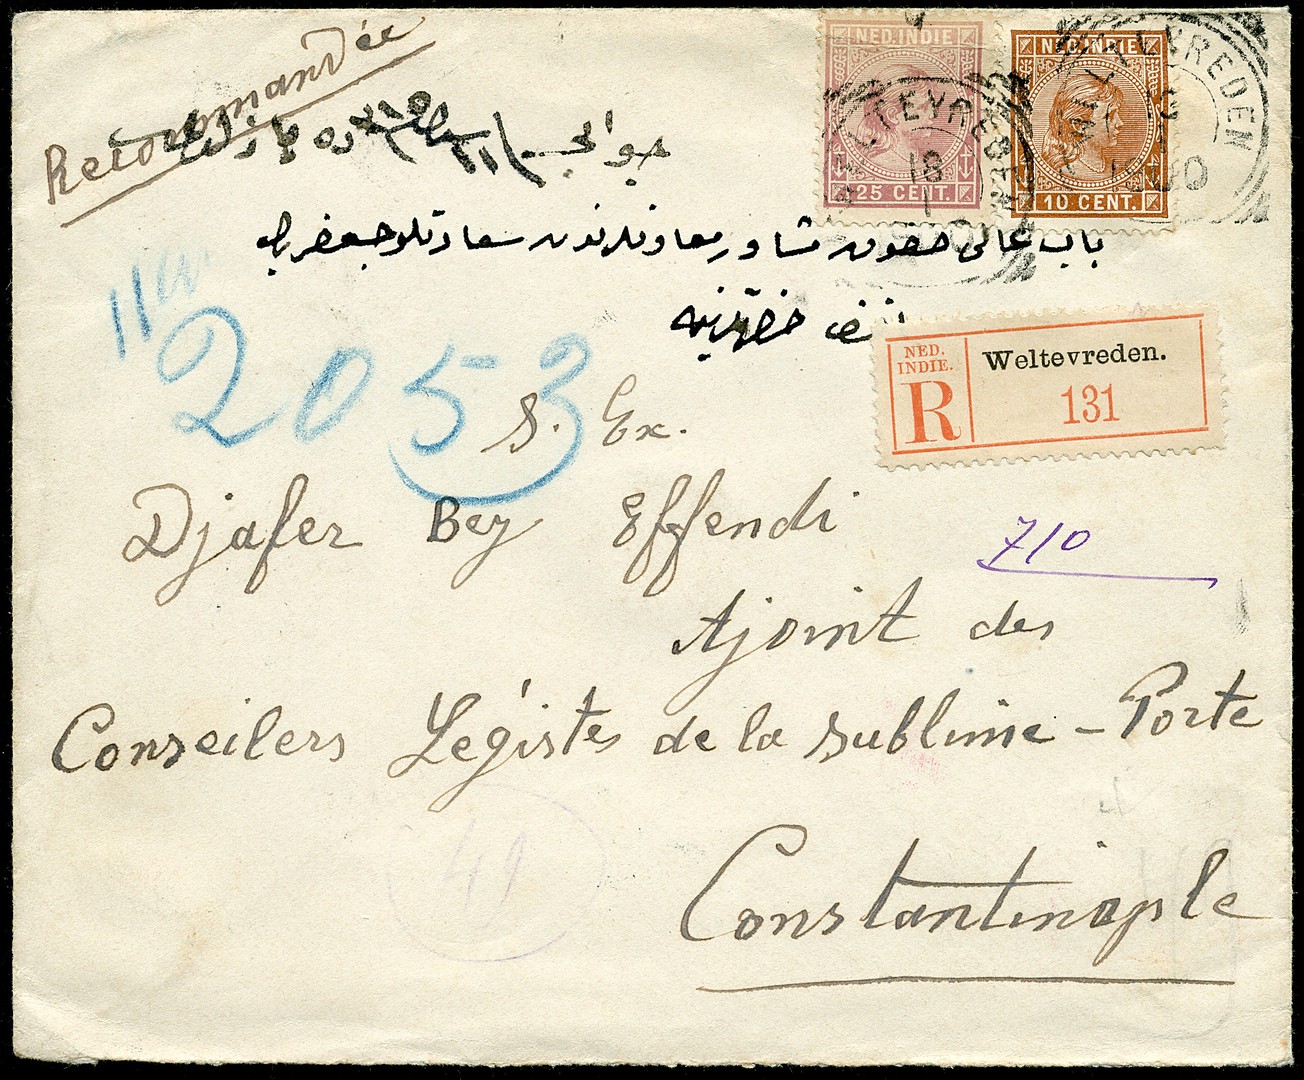 Recommandée
NED. INDIE
25 CENT.
NED. INDIE
10 CENT.
18
1
WELTEVREDEN
باب عالی حقوق مشاور معاونلرندن سعادتلو جعفر بك
حضرتلرینه
NED.
INDIE.
R
Weltevreden.
131
2053
S. Ex.
Djafer Bey Effendi
710
Ajoint des
Conseilers Légistes de la Sublime-Porte
41
Constantinople